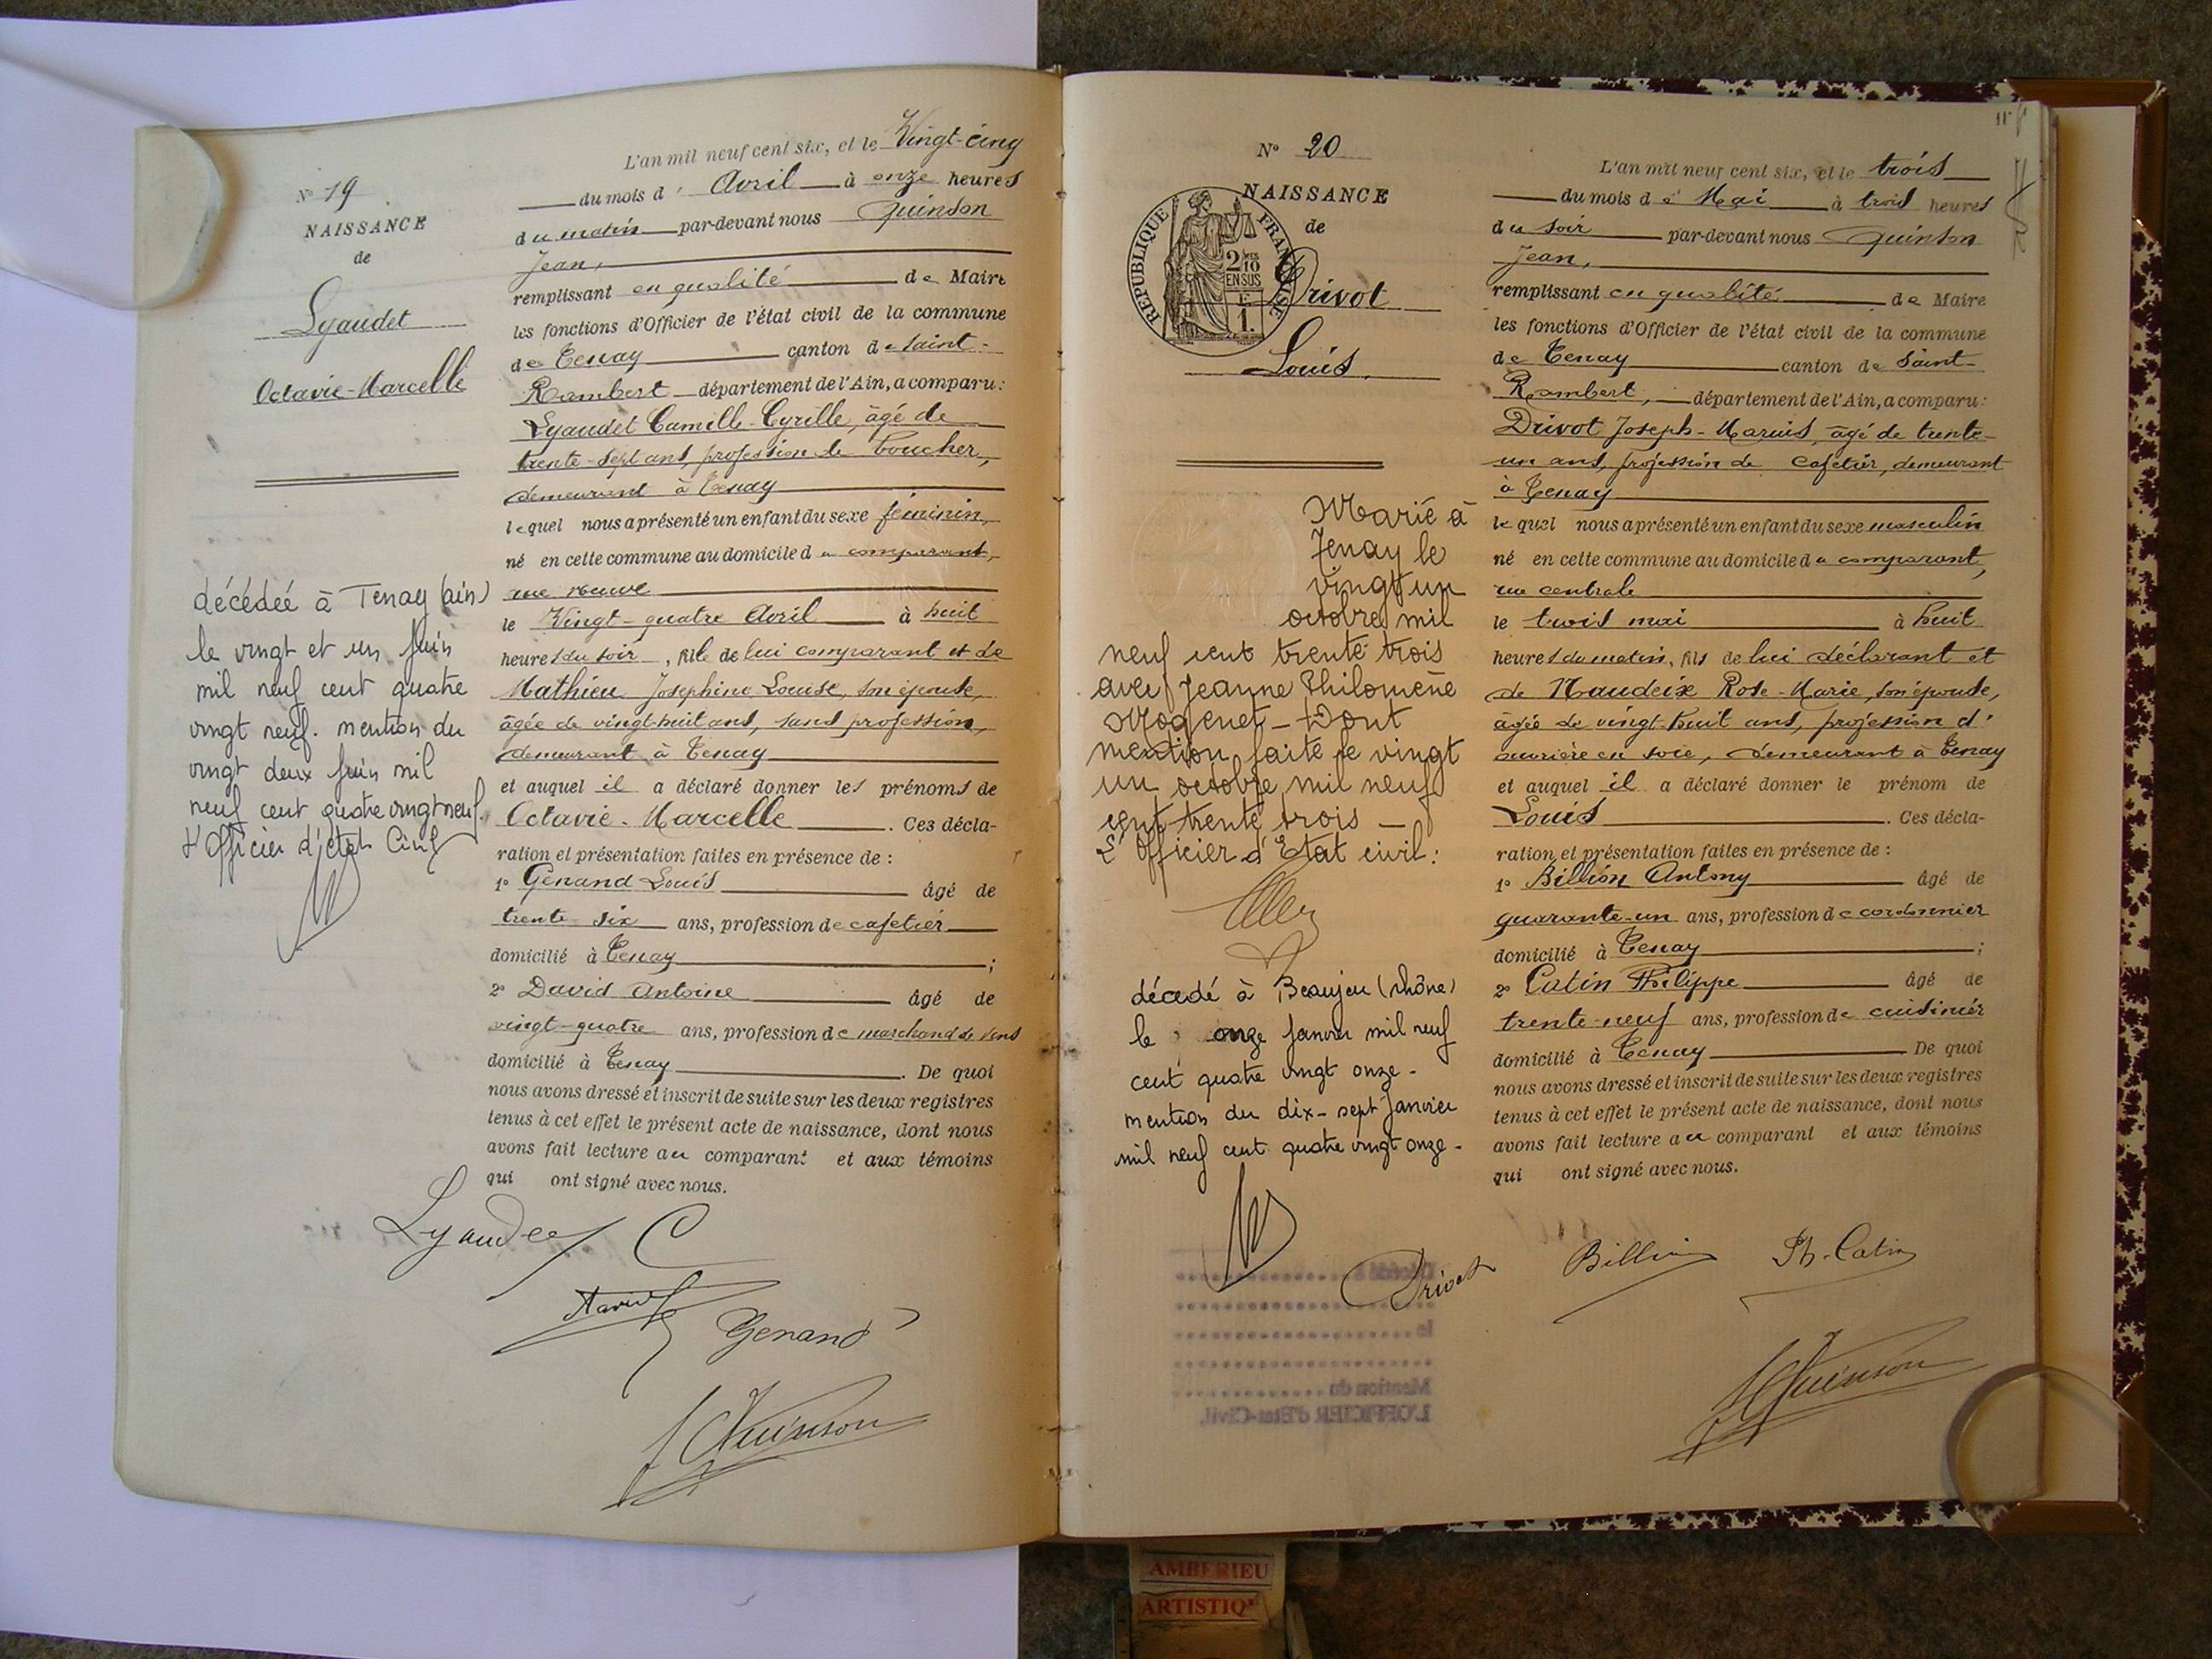 N° 19
NAISSANCE
de
Lyaudet
Octavie-Marcelle
décédée à Tenay (ain)
le vingt et un juin
mil neuf cent quatre
vingt neuf. mention du
vingt deux juin mil
neuf cent quatre vingt neuf.
L'officier d'état Civil
L'an mil neuf cent six, et le Vingt-cinq
du mois d' Avril à onze heures
du matin par-devant nous Quinson
Jean,
remplissant en qualité de Maire
les fonctions d'Officier de l'état civil de la commune
de Tenay canton de Saint-
Rambert département de l'Ain, a comparu:
Lyaudet Camille-Cyrille, âgé de
trente-sept ans, profession de boucher,
demeurant à Tenay
lequel nous a présenté un enfant du sexe féminin,
né en cette commune au domicile du comparant,
rue neuve
le Vingt-quatre Avril à huit
heures du soir, fille de lui comparant et de
Mathieu Josephine Louise, son épouse,
âgée de vingt-huit ans, sans profession,
demeurant à Tenay
et auquel il a déclaré donner les prénoms de
Octavie-Marcelle. Ces décla-
ration et présentation faites en présence de :
1° Genand Louis âgé de
trente-six ans, profession de cafetier
domicilié à Tenay ;
2° David Antoine âgé de
vingt-quatre ans, profession de marchand de vins
domicilié à Tenay. De quoi
nous avons dressé et inscrit de suite sur les deux registres
tenus à cet effet le présent acte de naissance, dont nous
avons fait lecture au comparant et aux témoins
qui ont signé avec nous.
Lyaudet C
David
Genand
J Quinson
N° 20
NAISSANCE
de
REPUBLIQUE FRANÇAISE
2/10 EN SUS
1.
Drivot
Louis,
Marié à
Tenay le
vingt un
octobre mil
neuf cent trente trois
avec Jeanne Philomène
Mogenet - Dont
mention faite le vingt
un octobre mil neuf
cent trente trois -
L'Officier d'Etat civil :
décédé à Beaujeu (rhône)
le onze janvier mil neuf
cent quatre vingt onze -
mention du dix-sept janvier
mil neuf cent quatre vingt onze -
L'an mil neuf cent six, et le trois
du mois de Mai à trois heures
du soir par-devant nous Quinson
Jean,
remplissant en qualité de Maire
les fonctions d'Officier de l'état civil de la commune
de Tenay canton de Saint-
Rambert, département de l'Ain, a comparu:
Drivot Joseph-Marius, âgé de trente-
un ans, profession de cafetier, demeurant
à Tenay
lequel nous a présenté un enfant du sexe masculin
né en cette commune au domicile du comparant,
rue centrale
le trois mai à huit
heures du matin, fils de lui déclarant et
de Naudeix Rose-Marie, son épouse,
âgée de vingt-huit ans, profession d'
ouvrière en soie, demeurant à Tenay
et auquel il a déclaré donner le prénom de
Louis. Ces décla-
ration et présentation faites en présence de :
1° Billion Antony âgé de
quarante-un ans, profession de cordonnier
domicilié à Tenay ;
2° Catin Philippe âgé de
trente-neuf ans, profession de cuisinier
domicilié à Tenay De quoi
nous avons dressé et inscrit de suite sur les deux registres
tenus à cet effet le présent acte de naissance, dont nous
avons fait lecture au comparant et aux témoins
qui ont signé avec nous.
Drivot Billion Ph. Catin
J Quinson
Décédé à
le
Mention du
L'OFFICIER d'Etat-Civil.
AMBERIEU
ARTISTIQ